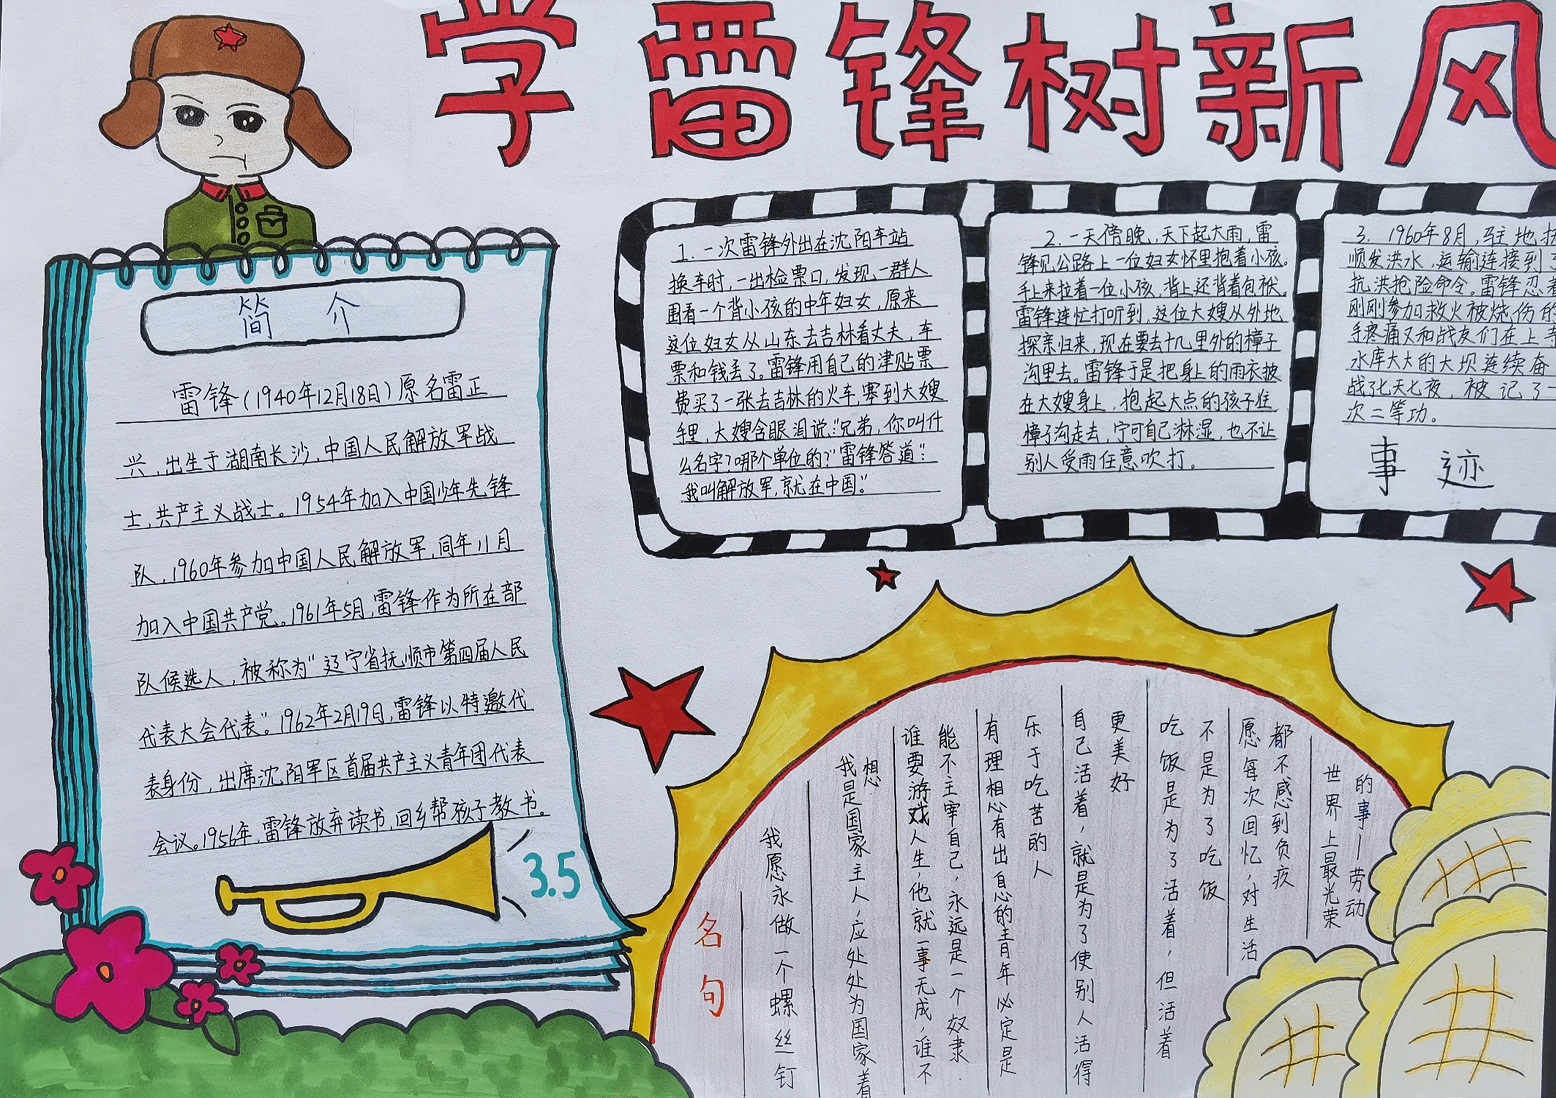 学雷锋树新风
简介
雷锋(1940年12月18日)原名雷正
兴,出生于湖南长沙,中国人民解放军战
士,共产主义战士。1954年加入中国少年先锋
队,1960年参加中国人民解放军,同年11月
加入中国共产党。1961年5月,雷锋作为所在部
队候选人,被称为“辽宁省抚顺市第四届人民
代表大会代表”。1962年2月19日,雷锋以特邀代
表身份,出席沈阳军区首届共产主义青年团代表
会议。1956年,雷锋放弃读书,回乡帮孩子教书。
3.5
1.一次雷锋外出在沈阳车站
换车时,一出检票口,发现一群人
围看一个背小孩的中年妇女,原来
这位妇女从山东去吉林看丈夫,车
票和钱丢了。雷锋用自己的津贴票
费买了一张去吉林的火车,塞到大嫂
手里,大嫂含眼泪说:“兄弟,你叫什
么名字?哪个单位的?”雷锋答道:“
我叫解放军,就在中国。”
2.一天傍晚,天下起大雨,雷
锋见公路上一位妇女怀里抱着小孩,
手上来拉着一位小孩,背上还背着包袱,
雷锋连忙打听到,这位大嫂从外地
探亲归来,现在要去十几里外的樟子
沟里去。雷锋于是把身上的雨衣披
在大嫂身上,抱起大点的孩子往
樟子沟走去,宁可自己淋湿,也不让
别人受雨任意吹打。
3.1960年8月,驻地抚
顺发洪水,运输连接到了
抗洪抢险命令,雷锋忍着
刚刚参加救火被烧伤的
手疼痛又和战友们在上寺
水库大大的大坝连续奋
战了七天七夜,被记了一
次二等功。
事迹
名句
我愿永做一个螺丝钉
我是国家主人,应处处为国家着
想
谁要游戏人生,他就一事无成,谁不
能不主宰自己,永远是一个奴隶.
有理想有出息的青年必定是
乐于吃苦的人
自己活着,就是为了使别人活得
更美好
吃饭是为了活着,但活着
不是为了吃饭
愿每次回忆,对生活
都不感到负疚
世界上最光荣
的事—劳动